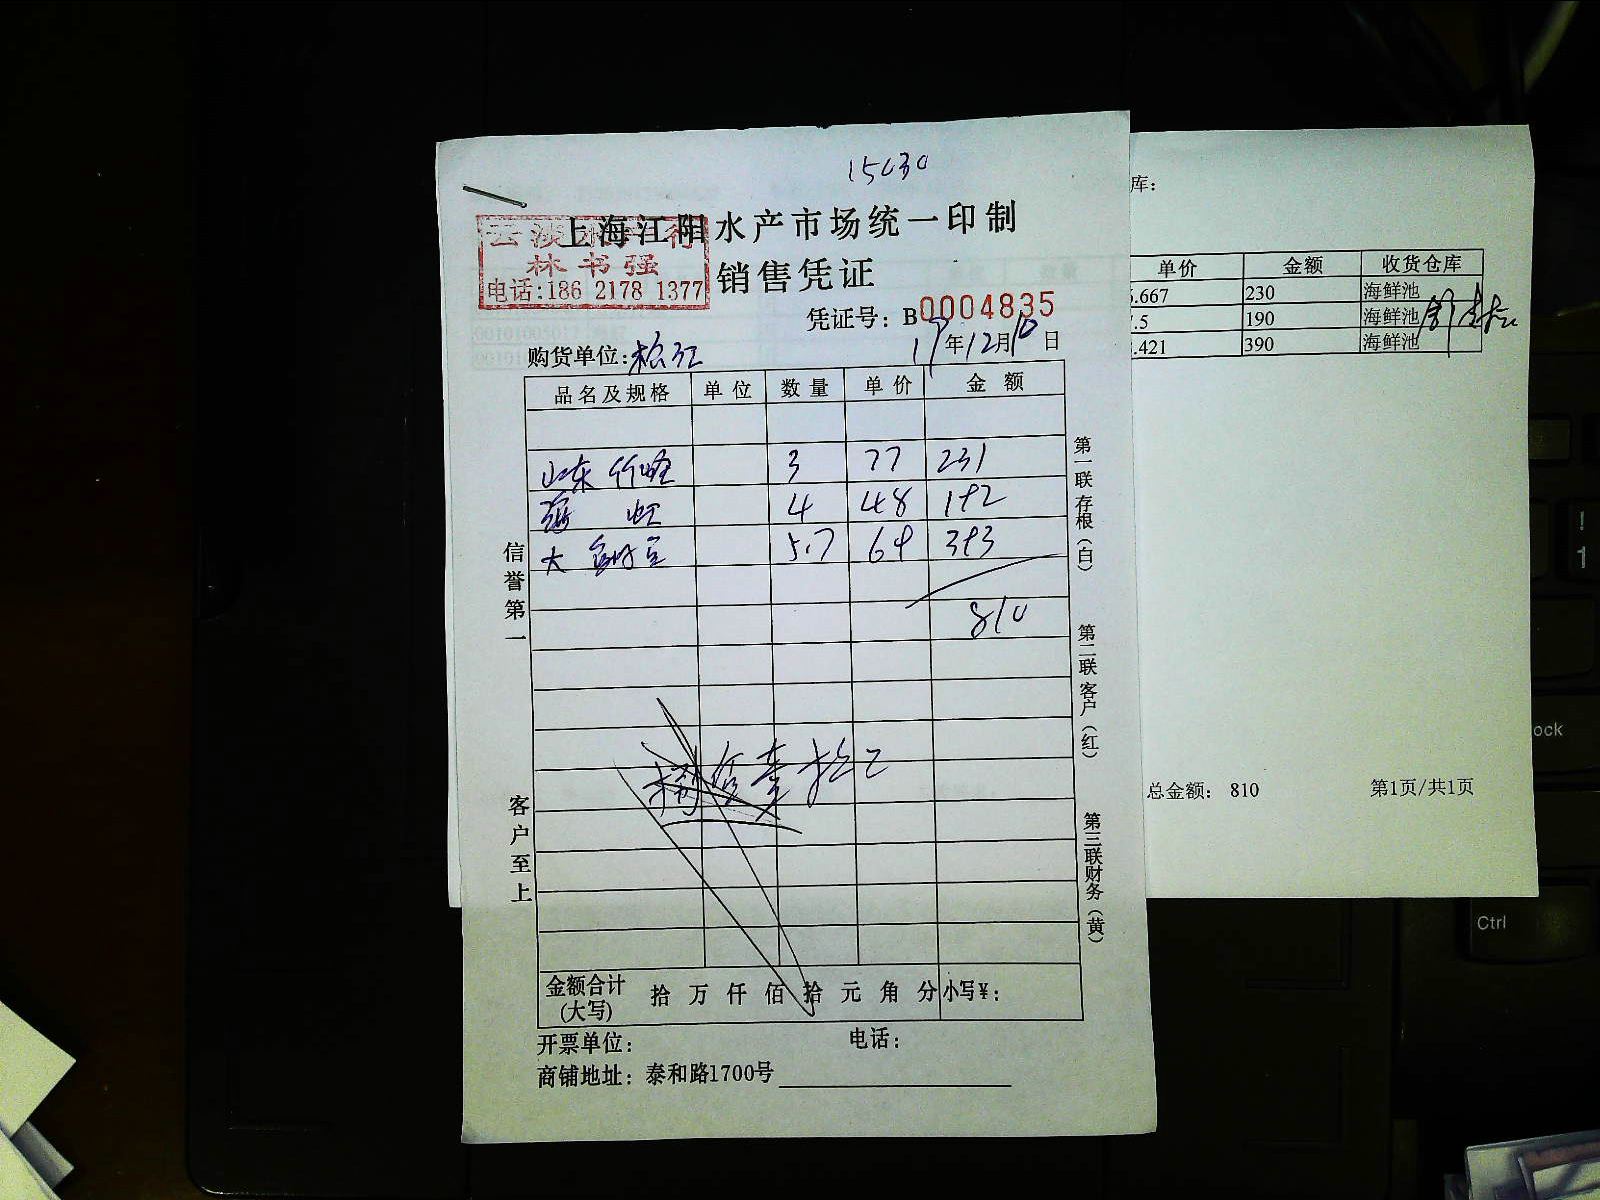 15030
上海江阳水产市场统一印制
林书强
电话:186 2178 1377
销售凭证
凭证号: B0004835
购货单位: 松江
19年12月10日
品名及规格 单位 数量 单价 金额
山东竹蛏 3 77 231
4 48 192
大 5.7 69 393
810
信誉第一
客户至上
第一联存根(白)
第二联客户(红)
第三联财务(黄)
金额合计(大写) 拾万仟佰拾元角分 小写¥:
开票单位: 电话:
商铺地址: 泰和路1700号
库:
单价 金额 收货仓库
.667 230 海鲜池
.5 190 海鲜池
.421 390 海鲜池
总金额: 810 第1页/共1页
ock
!
1
Ctrl